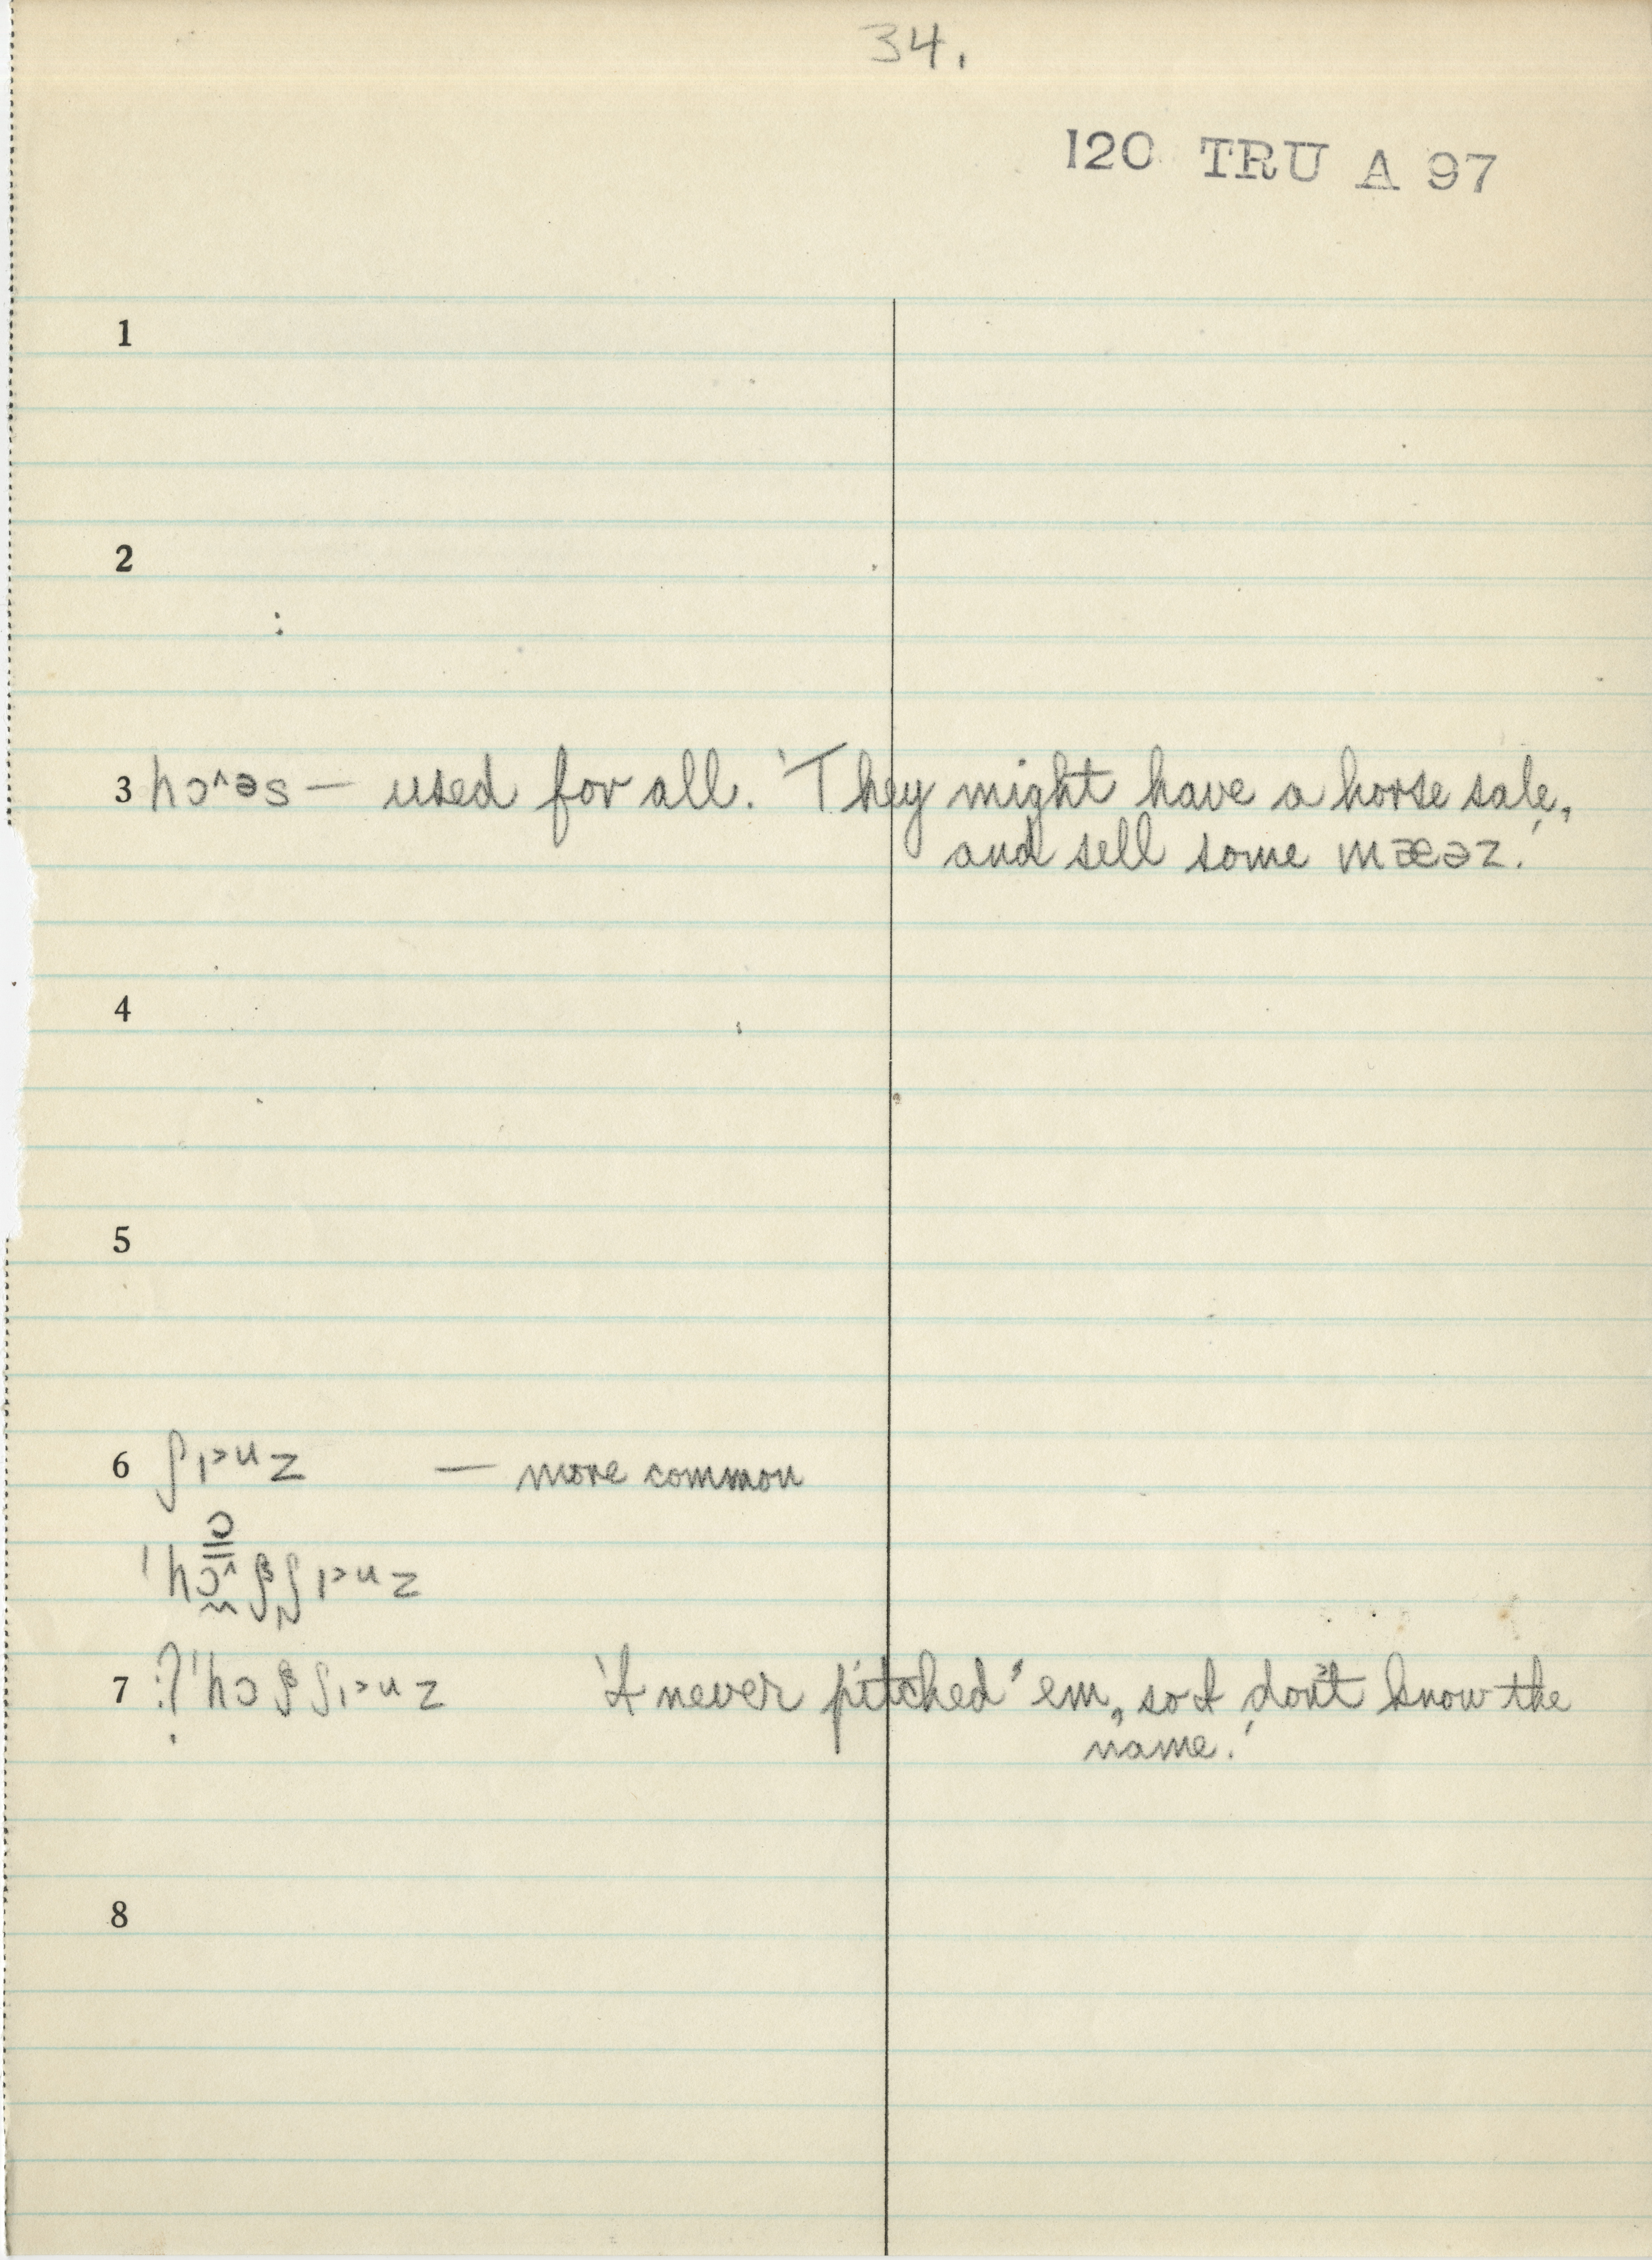 34.
120 TRU A 97
1
2
3 hɔ^əs — used for all. 'They might have a horse sale,
and sell some mæəz.'
4
5
6 ʃɪ>uz — more common
7 'I never pitched 'em, so I don't know the
name.'
8